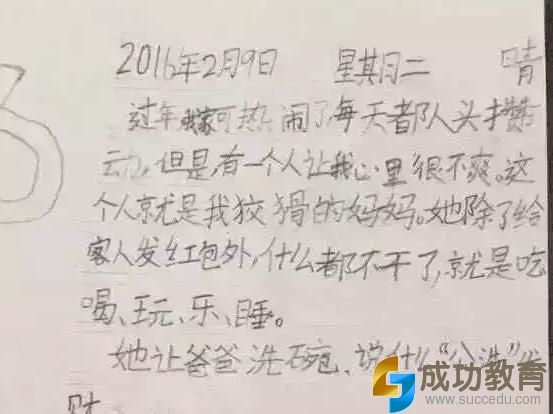 2016年2月9日 星期二 晴
过年我家可热闹了,每天都人头攒
动,但是,有一个人让我心里很不爽。这
个人就是我狡猾的妈妈。她除了给
客人发红包外,什么都不干了,就是吃
喝、玩、乐、睡。
她让爸爸洗碗、说什么“公洗”发
财
成功教育
www.succedu.com